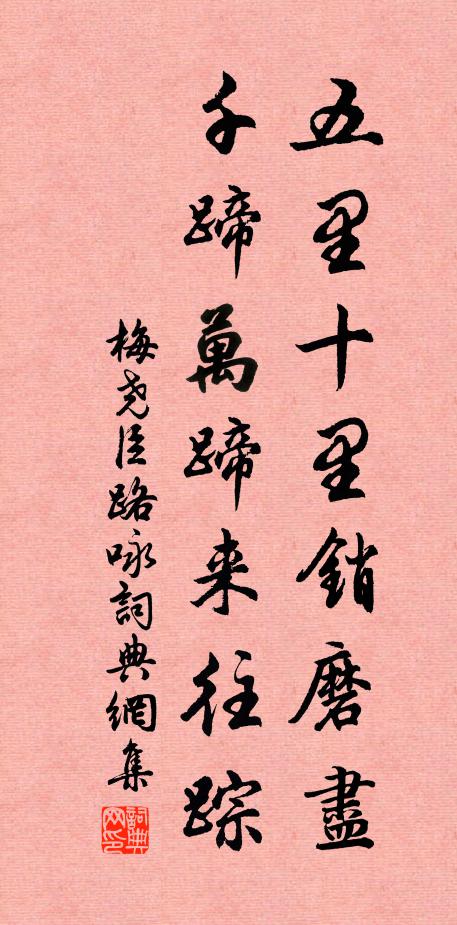 五里十里銷磨盡
千蹄萬蹄来往踪
梅尧臣路咏詞典網集
詞典网印